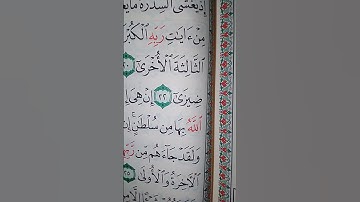 إِذْ يَغْشَى ٱلسِّدْرَةَ مَا يَغْ
مِنْ ءَايَٰتِ رَبِّهِ ٱلْكُبْرَ
ٱلثَّالِثَةَ ٱلْأُخْرَىٰٓ
ضِيزَىٰٓ ٢٢ إِنْ هِىَ إِ
ٱللَّهُ بِهَا مِن سُلْطَٰنٍ ۚ إِن
وَلَقَدْ جَآءَهُم مِّن رَّبِّ
ٱلْءَاخِرَةُ وَٱلْأُولَىٰ ٢٥